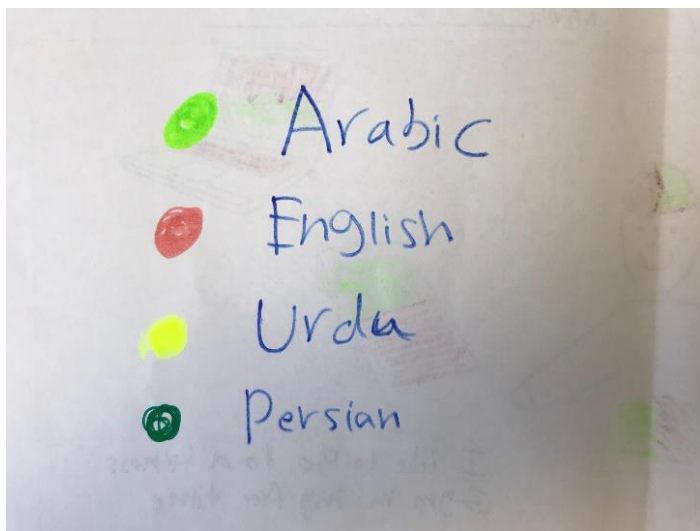 Arabic
English
Urdu
Persian